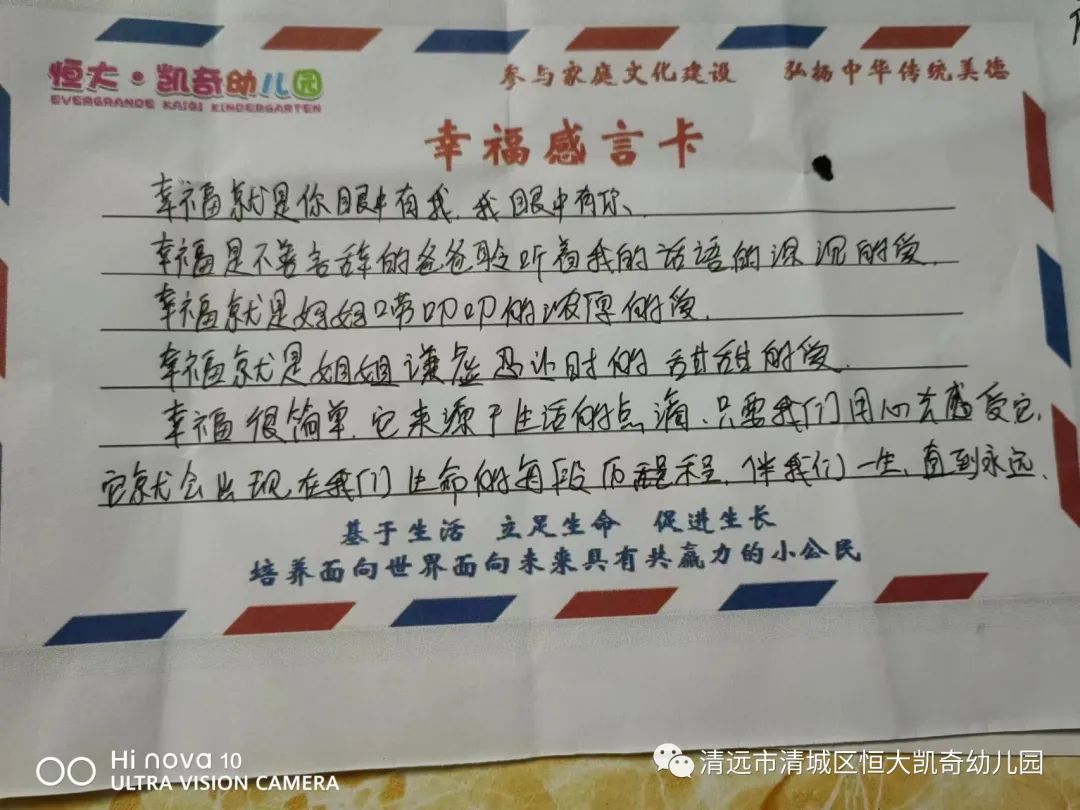 恒大·凯奇幼儿园
EVERGRANDE KAIQI KINDERGARTEN
参与家庭文化建设 弘扬中华传统美德
幸福感言卡
幸福就是你眼中有我,我眼中有你、
幸福是不善言辞的爸爸聆听着我的话语的深沉的爱.
幸福就是妈妈唠叨叨的浓厚的爱.
幸福就是姐姐谦虚忍让时的甜甜的爱.
幸福很简单,它来源于生活的点滴、只要我们用心去感受它,
它就会出现在我们生命的每段历程,伴我们一生,直到永远.
基于生活 立足生命 促进生长
培养面向世界面向未来具有共赢力的小公民
Hi nova 10
ULTRA VISION CAMERA
清远市清城区恒大凯奇幼儿园